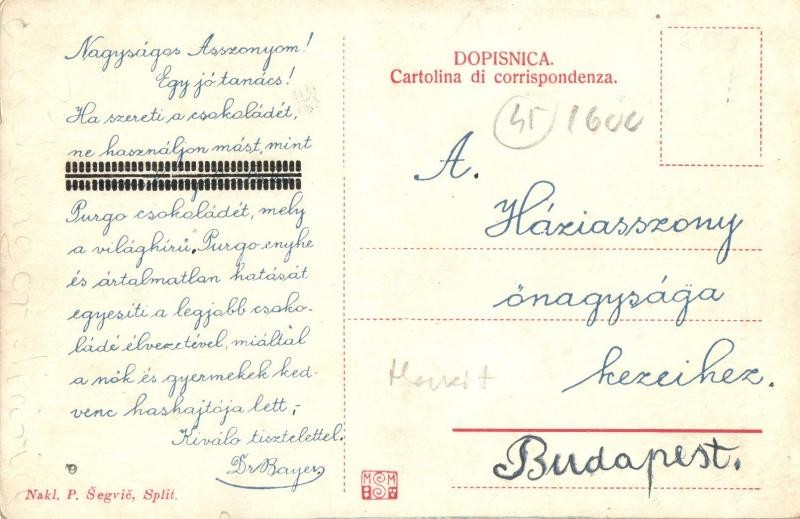 Nagyságos Asszonyom!
Egy jó tanács!
Ha szereti a csokoládét,
ne használjon mást, mint
Purgo csokoládét, mely
a világhírű, Purgo enyhe
és ártalmatlan hatását
egyesíti a legjobb csoko-
ládé élvezetével, miáltal
a nők és gyermekek ked-
venc hashajtója lett,-
Kiváló tisztelettel.
Dr Bayer
9
Nakl. P. Šegvič, Split.
DOPISNICA.
Cartolina di corrispondenza.
45/1600
A.
Háziasszony
őnagysága
kezeihez.
Budapest.